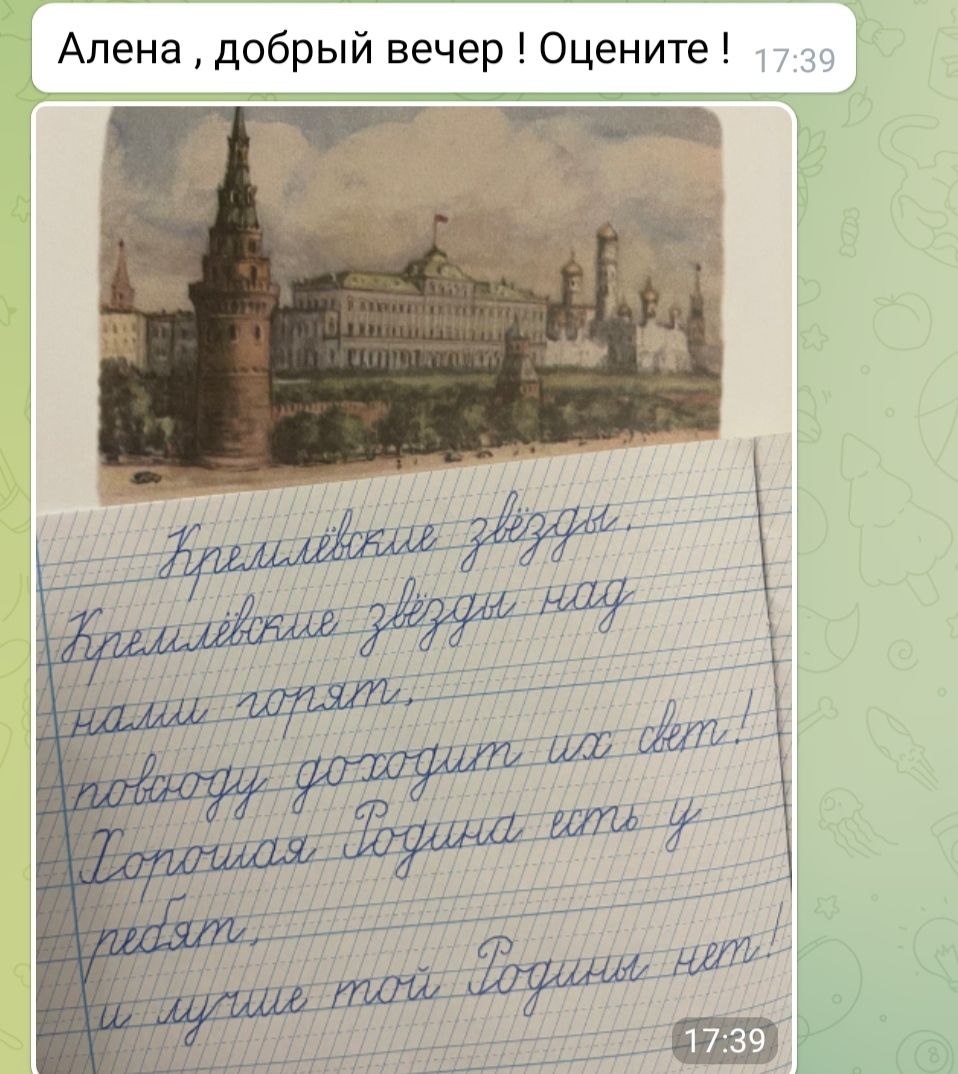 Алена , добрый вечер ! Оцените ! 17:39
Кремлёвские звёзды.
Кремлёвские звёзды над
нами горят,
повсюду доходит их свет!
Хорошая Родина есть у
ребят,
и лучше той Родины нет!
17:39